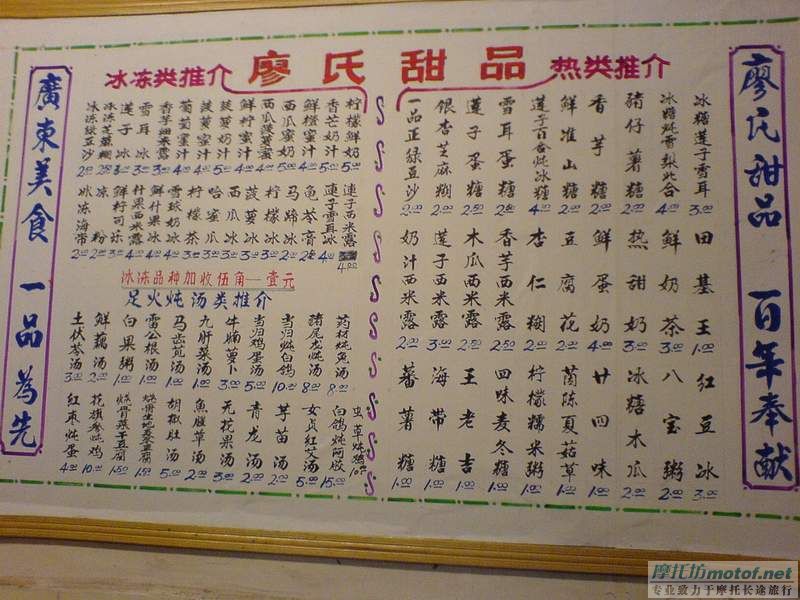 冰冻类推介
廖氏甜品
热类推介
廣東美食 一品為先
冰冻绿豆沙 2.00
冰冻芝麻糊
莲子冰
雪耳冰
香芋细米露
葡萄蜜汁
菠萝蜜汁
菠萝奶汁
鲜柠蜜汁
西瓜菠萝蜜
西瓜蜜奶
鲜橙蜜汁
香芒奶汁
柠檬鲜奶
冰冻海带
凉粉
鲜柠可乐
什果西米露
鲜什果冰
雪球奶冰
柠檬茶
哈蜜瓜冰
西瓜冰
菠萝冰
柠檬冰
马蹄冰
龟苓膏
莲子雪耳冰
莲子西米露 4.00
冰冻品种加收伍角一壹元
足火炖汤类推介
土伏苓汤 3.00
鲜藕汤 2.00
白果粥 1.00
雷公根汤 1.50
马齿苋汤 1.00
九肝菜汤 1.00
牛腩萝卜 3.00
当归鸡蛋汤 5.00
当归炖白鸽 10.00
猪尾龙炖汤 8.00
药材炖龟汤 8.00
红枣炖蛋 4.00
花旗参炖鸡 10.00
胡椒肚汤 5.00
鱼腥草汤 2.00
无花果汤 3.00
青龙汤 2.00
芋苗汤 2.00
女贞红艾汤 5.00
白鸽炖阿胶 15.00
虫草炖鸡
一品正绿豆沙 2.00
银杏芝麻糊 2.00
莲子蛋糖 2.50
雪耳蛋糖
莲子百合炖冰糖 4.00
鲜淮山糖 2.00
香芋糖 2.00
猪仔薯糖 2.00
冰糖炖雪梨北合 4.00
冰糖莲子雪耳 3.00
奶汁西米露 2.00
莲子西米露 2.00
木瓜西米露 2.50
香芋西米露 2.50
杏仁糊 2.00
豆腐花 2.00
鲜蛋奶 4.00
热甜奶 3.00
鲜奶茶 3.00
田基王 1.00
蕃薯糖 1.00
海带糖 1.00
王老吉 1.00
四味麦冬糖 1.00
柠檬糯米粥 1.00
茵陈夏菇草 1.00
廿四味 1.00
冰糖木瓜 2.00
八宝粥 2.00
红豆冰 3.00
廖氏甜品 百年奉献
摩托坊motof.net
专业致力于摩托长途旅行